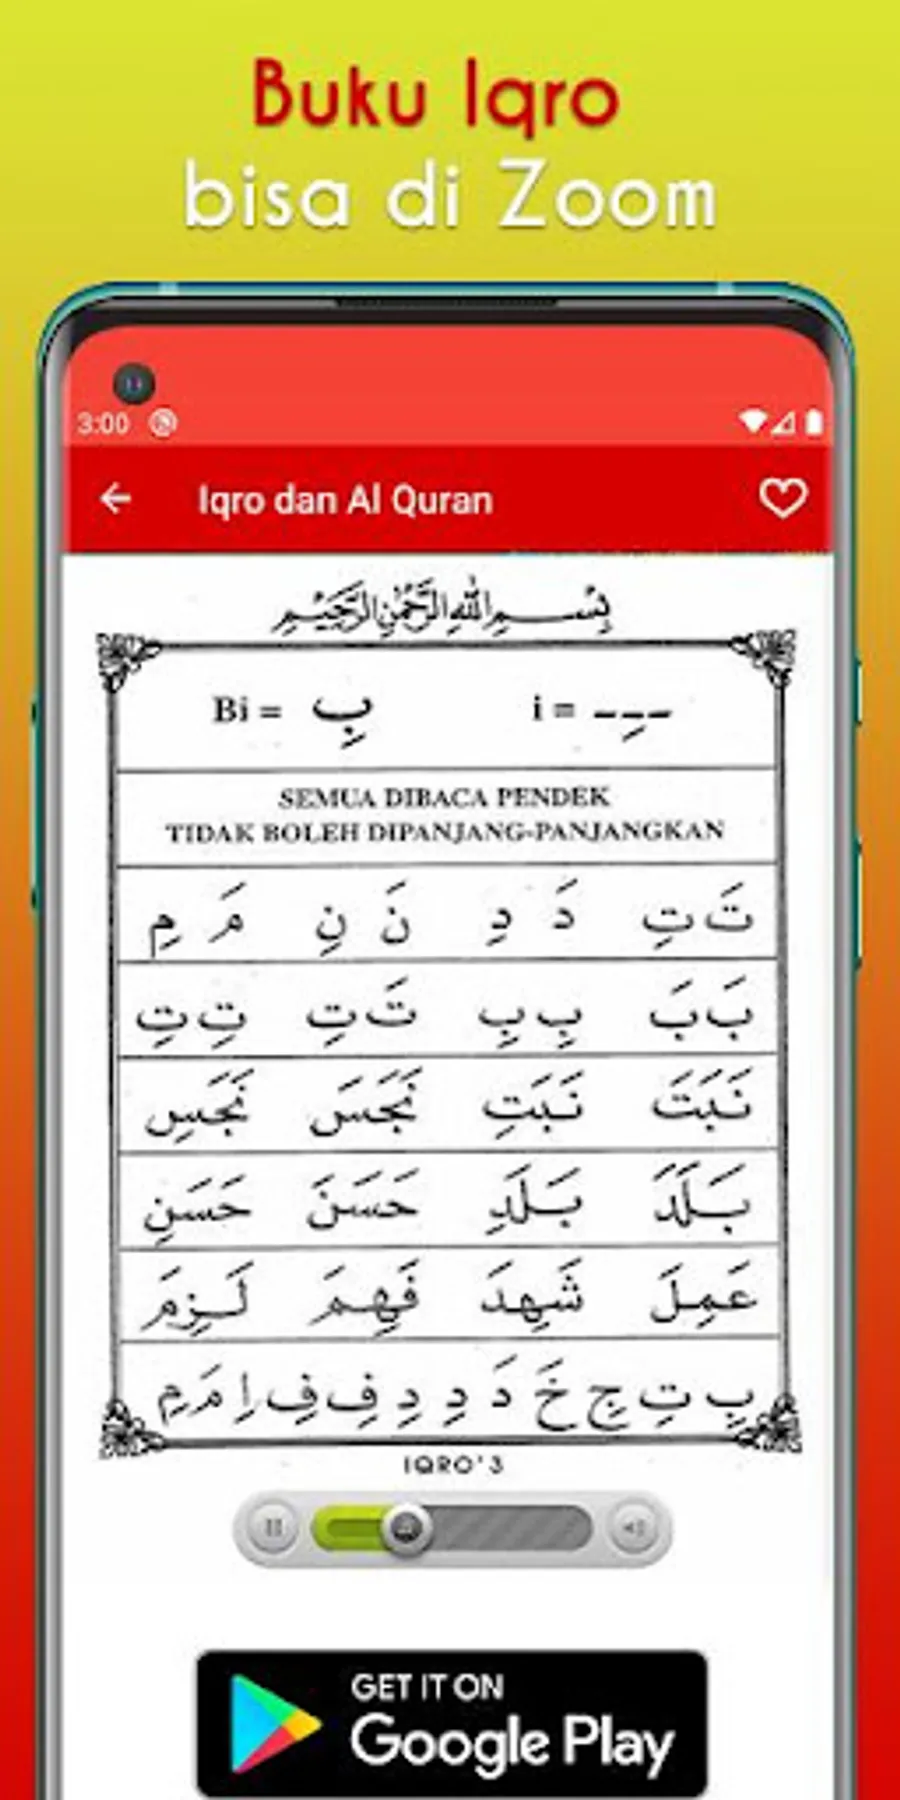 Buku Iqro
bisa di Zoom
3:00
Iqro dan Al Quran
بِسْمِ اللهِ الرَّحْمٰنِ الرَّحِيْمِ
Bi = بِ i = ـِ
SEMUA DIBACA PENDEK
TIDAK BOLEH DIPANJANG-PANJANGKAN
تَ تِ دَ دِ نَ نِ مَ مِ
بَ بَ بِ بِ تَ تِ تِ تِ
نَبَتَ نَبَتِ نَجَسَ نَجَسِ
بَلَدَ بَلَدِ حَسَنَ حَسَنِ
عَمِلَ شَهِدَ فَهِمَ لَزِمَ
بِ تِ جِ خَ دَ دِ دِ فِ فِ اِ مَ مِ
IQRO' 3
GET IT ON
Google Play